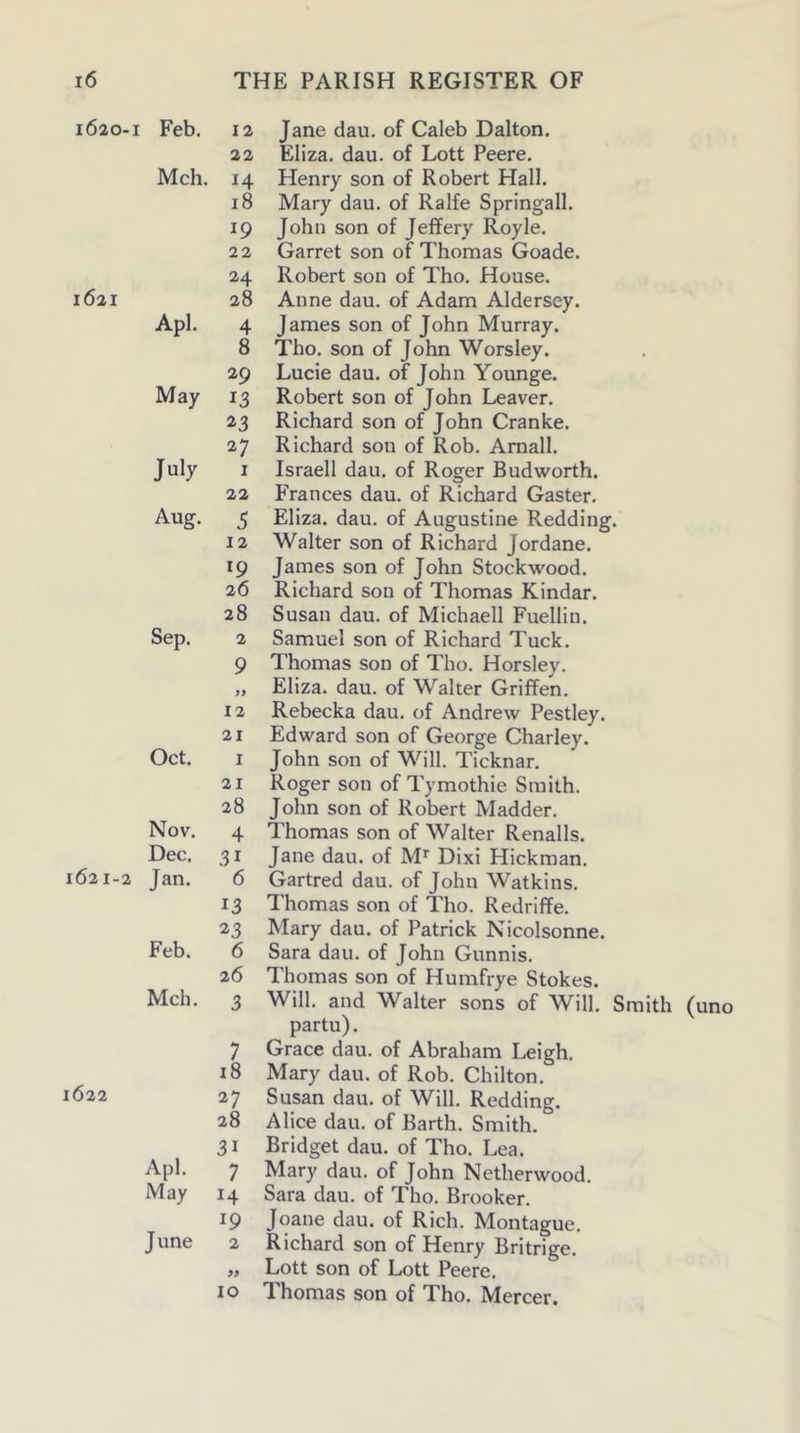 16 THE PARISH REGISTER OF
1620-1 Feb. 12 Jane dau. of Caleb Dalton.
22 Eliza. dau. of Lott Peere.
Mch. 14 Henry son of Robert Hall.
18 Mary dau. of Ralfe Springall.
19 John son of Jeffery Royle.
22 Garret son of Thomas Goade.
24 Robert son of Tho. House.
1621 28 Anne dau. of Adam Aldersey.
Apl. 4 James son of John Murray.
8 Tho. son of John Worsley.
29 Lucie dau. of John Younge.
May 13 Robert son of John Leaver.
23 Richard son of John Cranke.
27 Richard son of Rob. Arnall.
July 1 Israell dau. of Roger Budworth.
22 Frances dau. of Richard Gaster.
Aug. 5 Eliza. dau. of Augustine Redding.
12 Walter son of Richard Jordane.
19 James son of John Stockwood.
26 Richard son of Thomas Kindar.
28 Susan dau. of Michaell Fuellin.
Sep. 2 Samuel son of Richard Tuck.
9 Thomas son of Tho. Horsley.
„ Eliza. dau. of Walter Griffen.
12 Rebecka dau. of Andrew Pestley.
21 Edward son of George Charley.
Oct. 1 John son of Will. Ticknar.
21 Roger son of Tymothie Smith.
28 John son of Robert Madder.
Nov. 4 Thomas son of Walter Renalls.
Dec. 31 Jane dau. of Mr Dixi Hickman.
1621-2 Jan. 6 Gartred dau. of John Watkins.
13 Thomas son of Tho. Redriffe.
23 Mary dau. of Patrick Nicolsonne.
Feb. 6 Sara dau. of John Gunnis.
26 Thomas son of Humfrye Stokes.
Mch. 3 Will. and Walter sons of Will. Smith (uno
partu).
7 Grace dau. of Abraham Leigh.
18 Mary dau. of Rob. Chilton.
1622 27 Susan dau. of Will. Redding.
28 Alice dau. of Barth. Smith.
31 Bridget dau. of Tho. Lea.
Apl. 7 Mary dau. of John Netherwood.
May 14 Sara dau. of Tho. Brooker.
19 Joane dau. of Rich. Montague.
June 2 Richard son of Henry Britrige.
„ Lott son of Lott Peere.
10 Thomas son of Tho. Mercer.